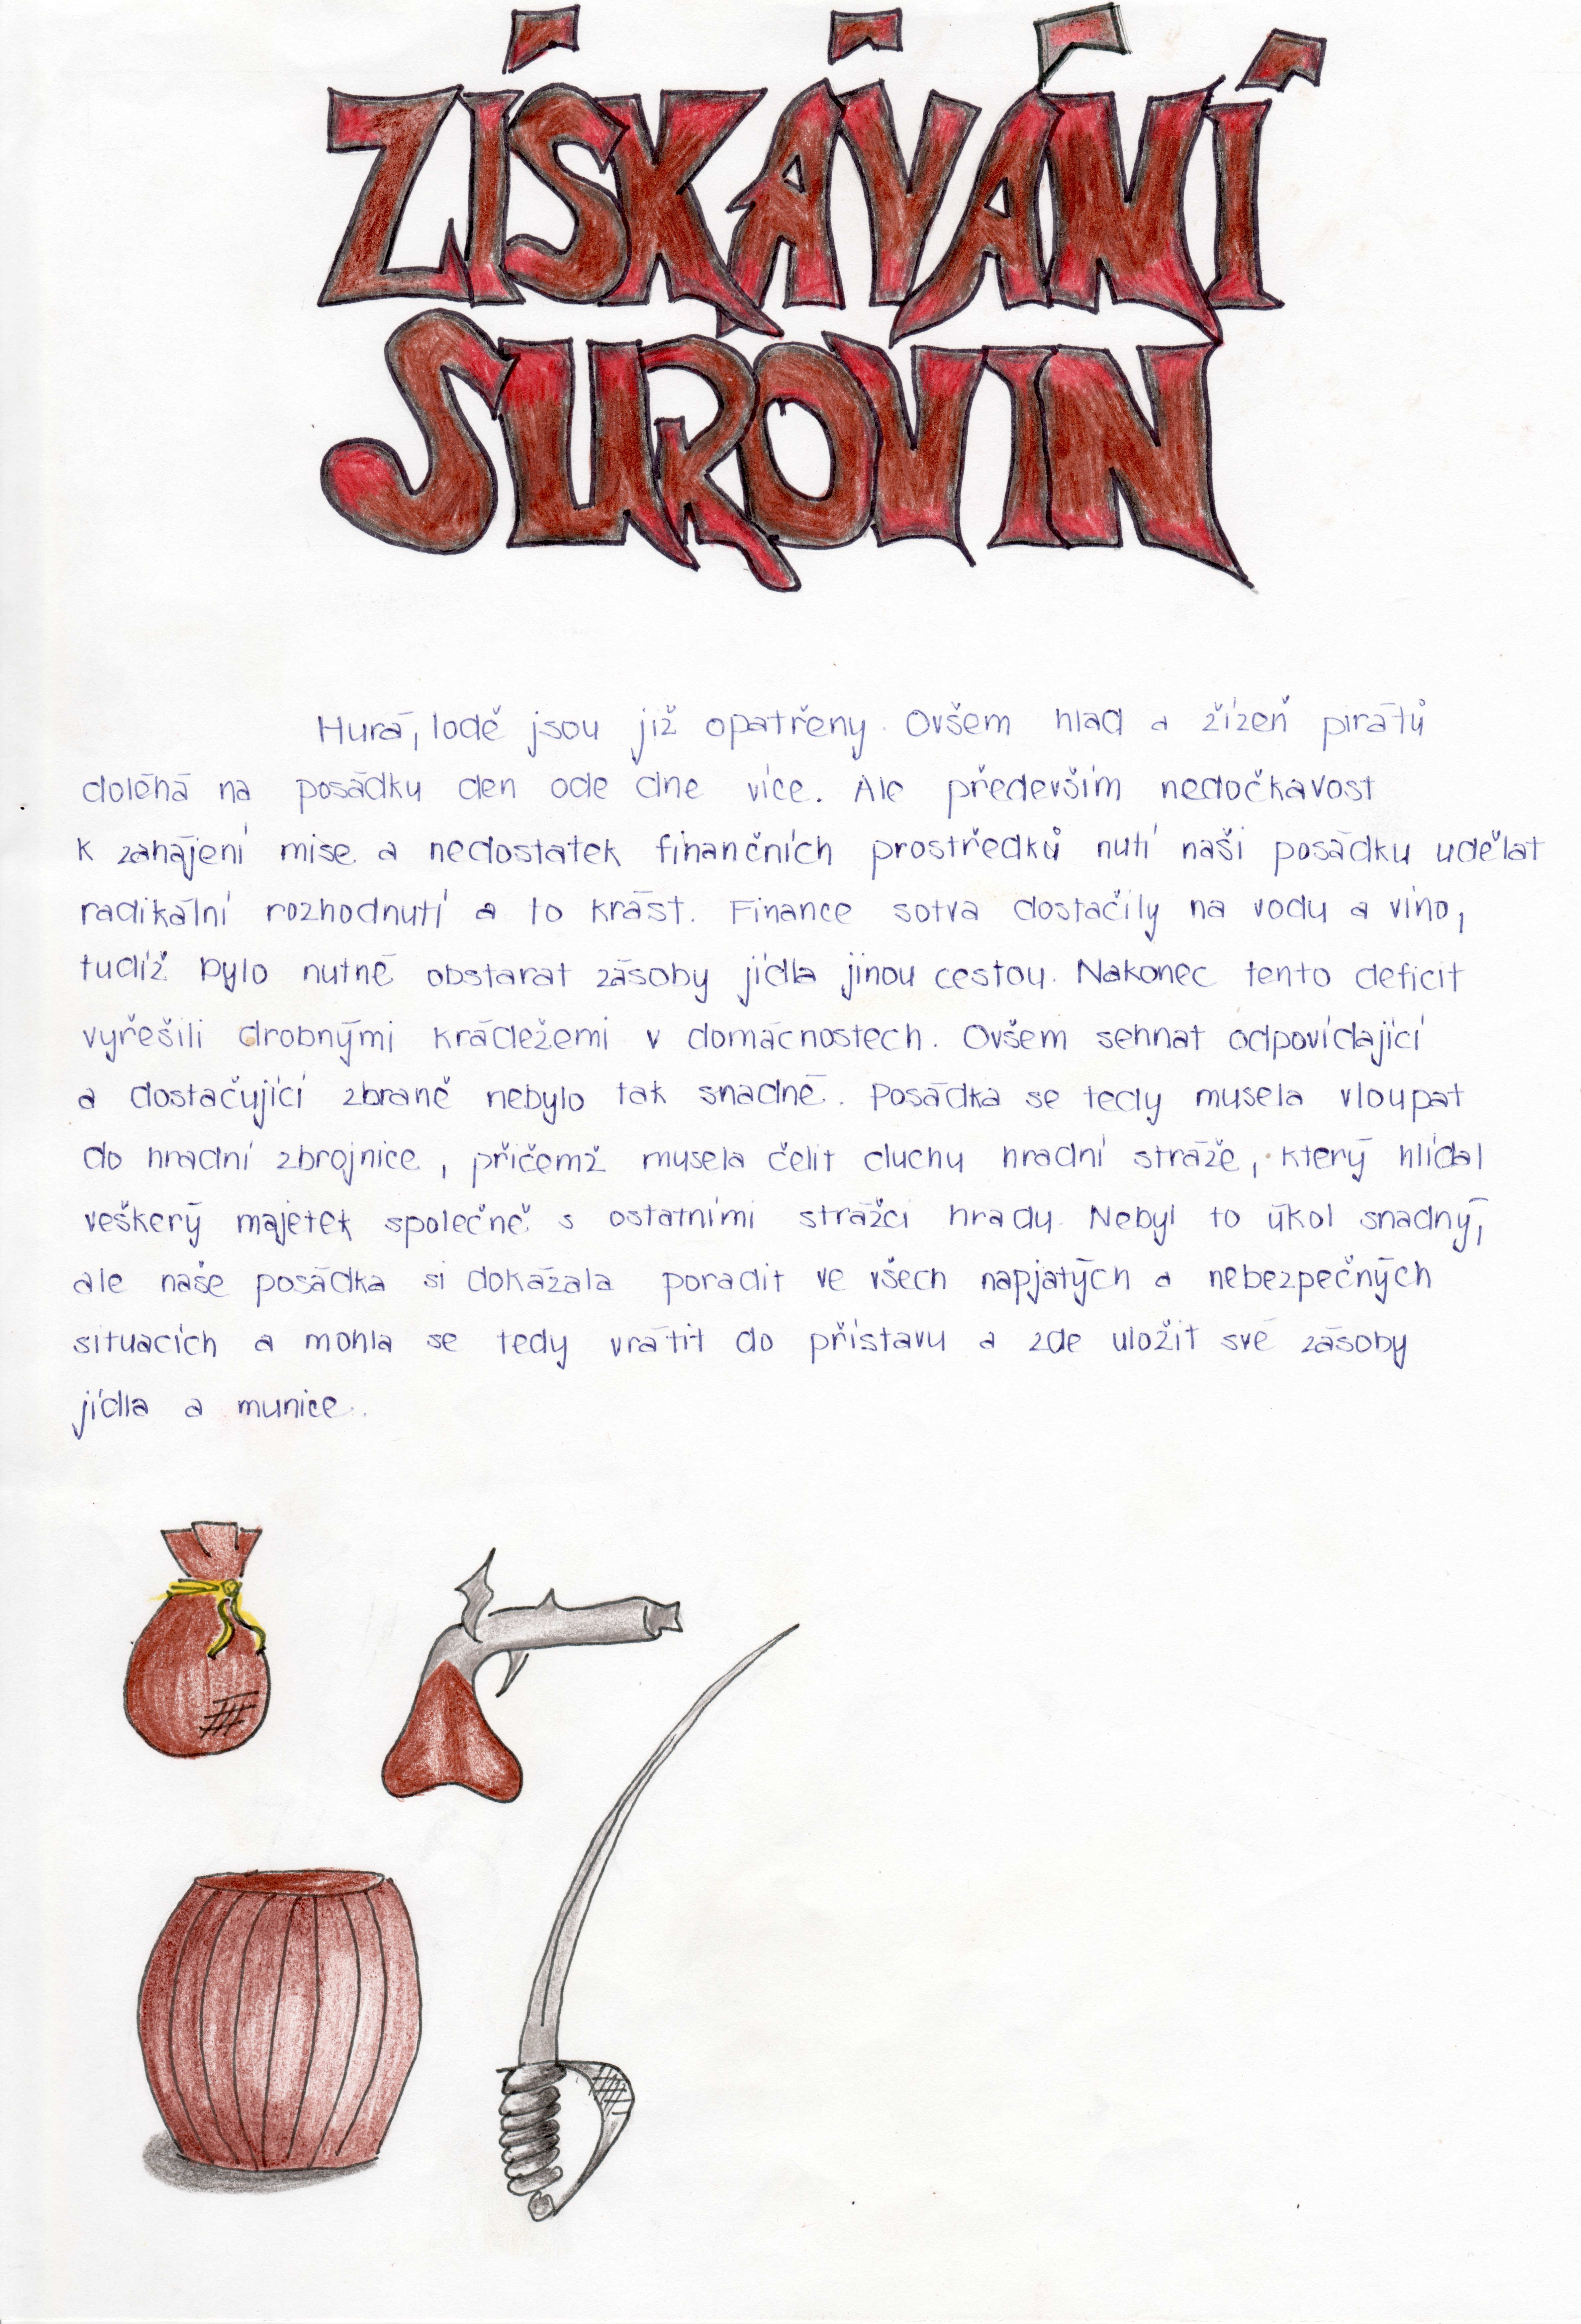 ZÍSKÁVÁNÍ
SUROVIN
Hurá, lodě jsou již opatřeny. Ovšem hlad a žízeň pirátů
doléhá na posádku den ode dne více. Ale především nedočkavost
k zahájení mise a nedostatek finančních prostředků nutí naši posádku udělat
radikální rozhodnutí a to krást. Finance sotva dostačily na vodu a víno,
tudíž bylo nutné obstarat zásoby jídla jinou cestou. Nakonec tento deficit
vyřešili drobnými krádežemi v domácnostech. Ovšem sehnat odpovídající
a dostačující zbraně nebylo tak snadné. Posádka se tedy musela vloupat
do hradní zbrojnice, přičemž musela čelit duchu hradní stráže, který hlídal
veškerý majetek společně s ostatními strážci hradu. Nebyl to úkol snadný,
ale naše posádka si dokázala poradit ve všech napjatých a nebezpečných
situacích a mohla se tedy vrátit do přístavu a zde uložit své zásoby
jídla a munice.